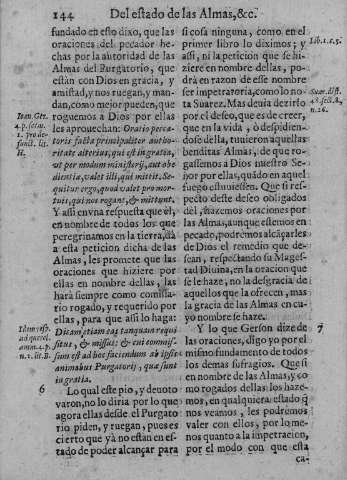 144 Del estado de las Almas, &c.
fundado en esto dixo, que las
oraciones del pecador hechas
por la autoridad de las
Almas del Purgatorio, que
estàn con Dios en gracia, y
amistad, y nos ruegan, y mandan,
como mejor pueden, que
roguemos a Dios por ellas
les aprouechan: Oratio peccatoris
facta principaliter authoritate
alterius, qui est in gratia,
vt per modum ministerij, aut obedientia,
valet illi, qui mittit. Sequitur
ergo, quod valet pro mortuis,
qui nos rogant, & mittunt.
Y assi en vna respuesta que èl,
en nombre de todos los que
peregrinamos en la tierra, dà
a esta peticion dicha de las
Almas, les promete que las
oraciones que hiziere por
ellas en nombre dellas, las
harà siempre como comissario
rogado, y requerido por
ellas, para que assi lo haga:
Dicam etiam eas tanquam requisitus,
& missus; & cui commissum
est ad hoc faciendum ab ipsis
animabus Purgatorij, quæ sunt
in gratia.
6 Lo qual este pio, y deuoto
varon, no lo diria por lo que
agora ellas desde el Purgatorio
piden, y ruegan, pues es
cierto que yà no estàn en estado
de poder alcançar para
Ioan. Ger.
4. p. serm.
H.
n. 1. lit. B.
si cosa ninguna, como en el
primer libro lo diximos; y
assi, ni la peticion que se hiziere
en nombre dellas, podrà
en razon de esse nombre
ser impetratoria, como lo nota
Suarez. Mas deuia dezirlo
por el deseo, que es de creer,
que en la vida, ò despidiendose
della, tuuieron aquellas
benditas Almas, de que rogassemos
a Dios nuestro Señor
por ellas, quãdo en aquel
fuego estuuiessen. Que si respecto
deste deseo obligados
del, hazemos oraciones por
las Almas, aunque estemos en
pecado, podremos alcãçarles
de Dios el remedio que desean,
respectando su Magestad
Diuina, en la oracion que
se le haze, no la desgracia de
aquellos que la ofrecen, mas
la gracia de las Almas en cuyo
nombre se haze.
Y lo que Gerson dize de 7
las oraciones, digo yo por el
mismo fundamento de todos
los demas sufragios. Que si
en nombre de las Almas, y como
rogados dellas los hazemos,
en qualquiera estado q̃
nos veamos, les podremos
valer con ellos, por lo menos
quanto a la impetracion,
por el modo con que esta
ca-
Lib. 1. c. 5.
Suar. dist.
48. sec. 8,
n. 26.